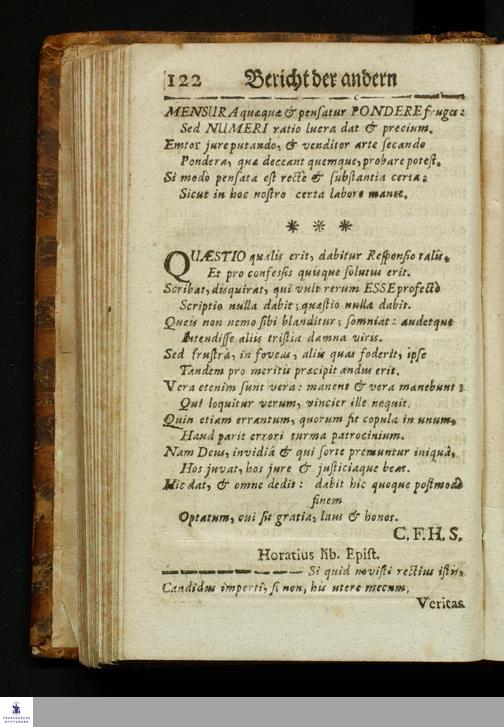 122 Bericht der andern
MENSURA quæquæ & pensatur PONDERE fruges:
Sed NUMERI ratio lucra dat & precium.
Emtor jure putando, & venditor arte secando
Pondera, quæ deceant quemque, probare potest.
Si modo pensata est rectè & substantia certa:
Sicut in hoc nostro certa labore manet.
* * *
QUÆSTIO qualis erit, dabitur Responsio talis.
Et pro confessis quisque solutus erit.
Scribat, disquirat, qui vult rerum ESSE profectò
Scriptio nulla dabit; quæstio nulla dabit.
Queis non nemo sibi blanditur; somniat: audetque
Intendisse aliis tristia damna viris.
Sed frustrà, in foveas, aliis quas foderit, ipse
Tandem pro meritis præcipitandus erit.
Vera etenim sunt vera: manent & vera manebunt:
Qui loquitur verum, vincier ille nequit.
Quin etiam errantum, quorum fit copula in unum,
Haud parit errori turma patrocinium.
Nam Deus, invidiâ & qui sorte premuntur iniquâ,
Hos juvat, hos jure & justiciaque beat.
Hic dat, & omne dedit: dabit hic quoque postmodò
finem
Optatum, cui sit gratia, laus & honos.
C. F. H. S.
Horatius lib. Epist.
Si quid novisti rectius istis,
Candidus imperti, si non, his utere mecum,
Veritas
FRANCKESCHE
STIFTUNGEN